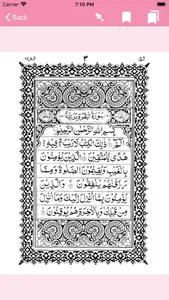 7:10 PM
Back
٣
سورة البقرة مدنية
بسم الله الرحمن الرحيم
الم ذلك الكتب لا ريب فيه
هدى للمتقين الذين يؤمنون
بالغيب ويقيمون الصلوة ومما
رزقنهم ينفقون والذين
يؤمنون بما انزل اليك وما انزل
من قبلك وبالاخرة هم يوقنون